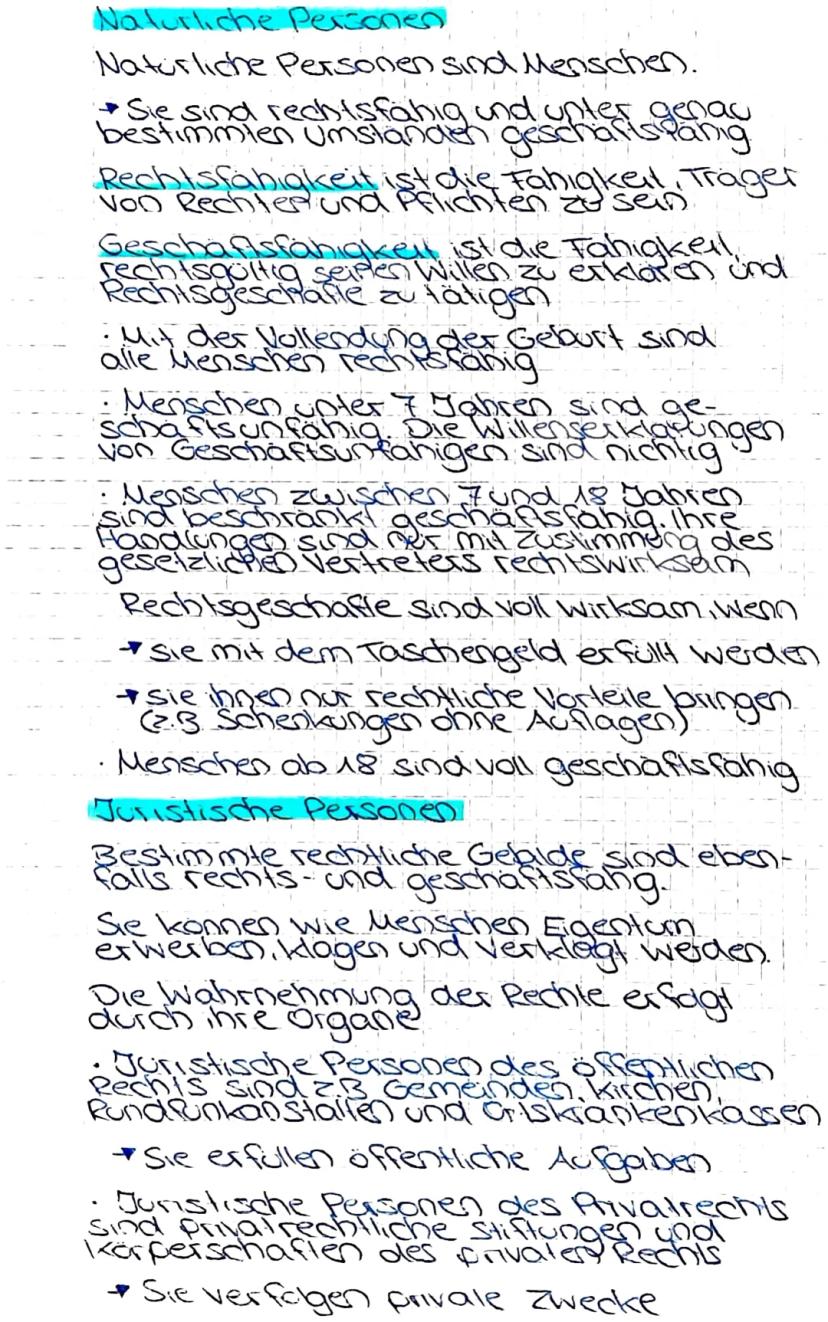 Natürliche Personen
Natürliche Personen sind Menschen.
→ Sie sind rechtsfähig und unter genau
bestimmten Umständen geschäftsfähig
Rechtsfähigkeit ist die Fähigkeit, Träger
von Rechten und Pflichten zu sein
Geschäftsfähigkeit ist die Fähigkeit,
rechtsgültig seinen Willen zu erklären und
Rechtsgeschäfte zu tätigen
· Mit der Vollendung der Geburt sind
alle Menschen rechtsfähig
· Menschen unter 7 Jahren sind ge-
schäftsunfähig. Die Willenserklärungen
von Geschäftsunfähigen sind nichtig
· Menschen zwischen 7 und 18 Jahren
sind beschränkt geschäftsfähig. Ihre
Handlungen sind nur mit Zustimmung des
gesetzlichen Vertreters rechtswirksam
Rechtsgeschäfte sind voll wirksam, wenn
→ sie mit dem Taschengeld erfüllt werden
→ sie ihnen nur rechtliche Vorteile bringen
(z.B Schenkungen ohne Auflagen)
· Menschen ab 18 sind voll geschäftsfähig
Juristische Personen
Bestimmte rechtliche Gebilde sind eben-
falls rechts- und geschäftsfähig.
Sie können wie Menschen Eigentum
erwerben, klagen und verklagt werden.
Die Wahrnehmung der Rechte erfolgt
durch ihre Organe
· Juristische Personen des öffentlichen
Rechts sind z.B Gemeinden, Kirchen,
Rundfunkanstalten und Ortskrankenkassen
→ Sie erfüllen öffentliche Aufgaben
· Juristische Personen des Privatrechts
sind privatrechtliche Stiftungen und
Körperschaften des privaten Rechts
→ Sie verfolgen private Zwecke